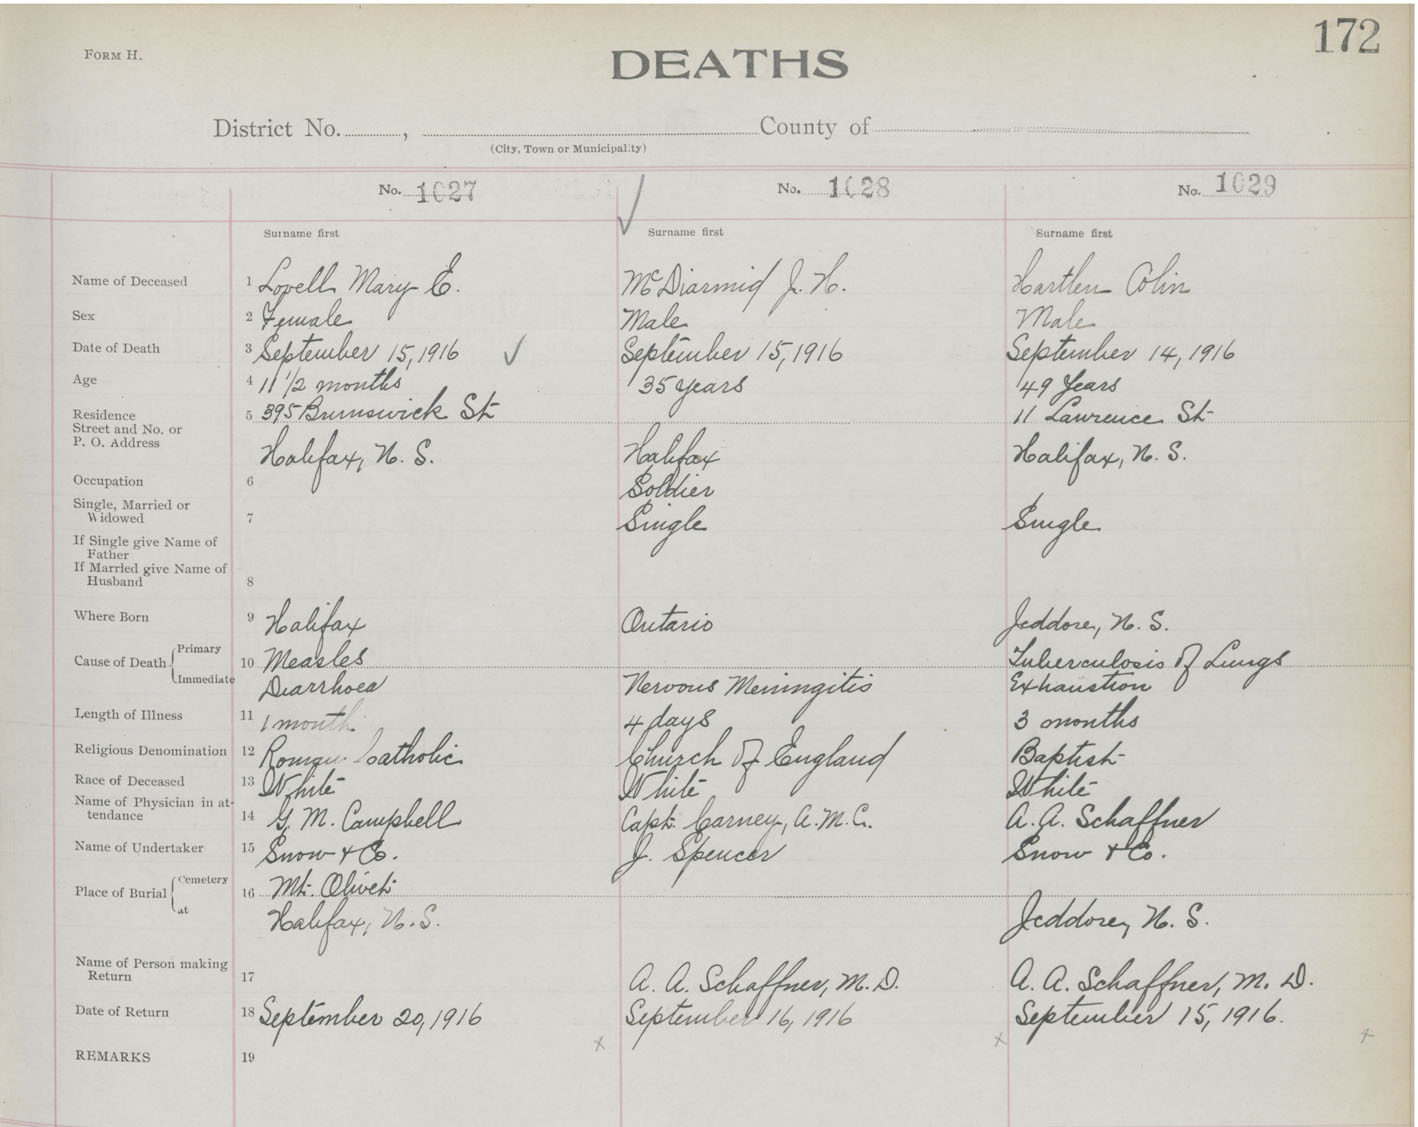 172
FORM H.
DEATHS
District No. , County of
(City, Town or Municipality)
No. 1027 No. 1028 No. 1029
Surname first Surname first Surname first
Name of Deceased 1 Lovell Mary E. McDiarmid J. H. Hartlen Colin
Sex 2 Female Male Male
Date of Death 3 September 15, 1916 September 15, 1916 September 14, 1916
Age 4 11 1/2 months 35 years 49 Years
Residence 5 395 Brunswick St 11 Lawrence St
Street and No. or
P. O. Address Halifax, N. S. Halifax Halifax, N. S.
Occupation 6 Soldier
Single, Married or
Widowed 7 Single Single
If Single give Name of
Father
If Married give Name of
Husband 8
Where Born 9 Halifax Ontario Jeddore, N. S.
Cause of Death Primary 10 Measles Tuberculosis of Lungs
Immediate Diarrhoea Nervous Meningitis Exhaustion
Length of Illness 11 1 month 4 days 3 months
Religious Denomination 12 Roman Catholic Church of England Baptist
Race of Deceased 13 White White White
Name of Physician in at-
tendance 14 G. M. Campbell Capt. Carney, A.M.C. A. A. Schaffner
Name of Undertaker 15 Snow & Co. J. Spencer Snow & Co.
Place of Burial Cemetery 16 Mt. Olivet
at Halifax, N. S. Jeddore, N. S.
Name of Person making
Return 17 A. A. Schaffner, M. D. A. A. Schaffner, M. D.
Date of Return 18 September 20, 1916 September 16, 1916 September 15, 1916.
REMARKS 19